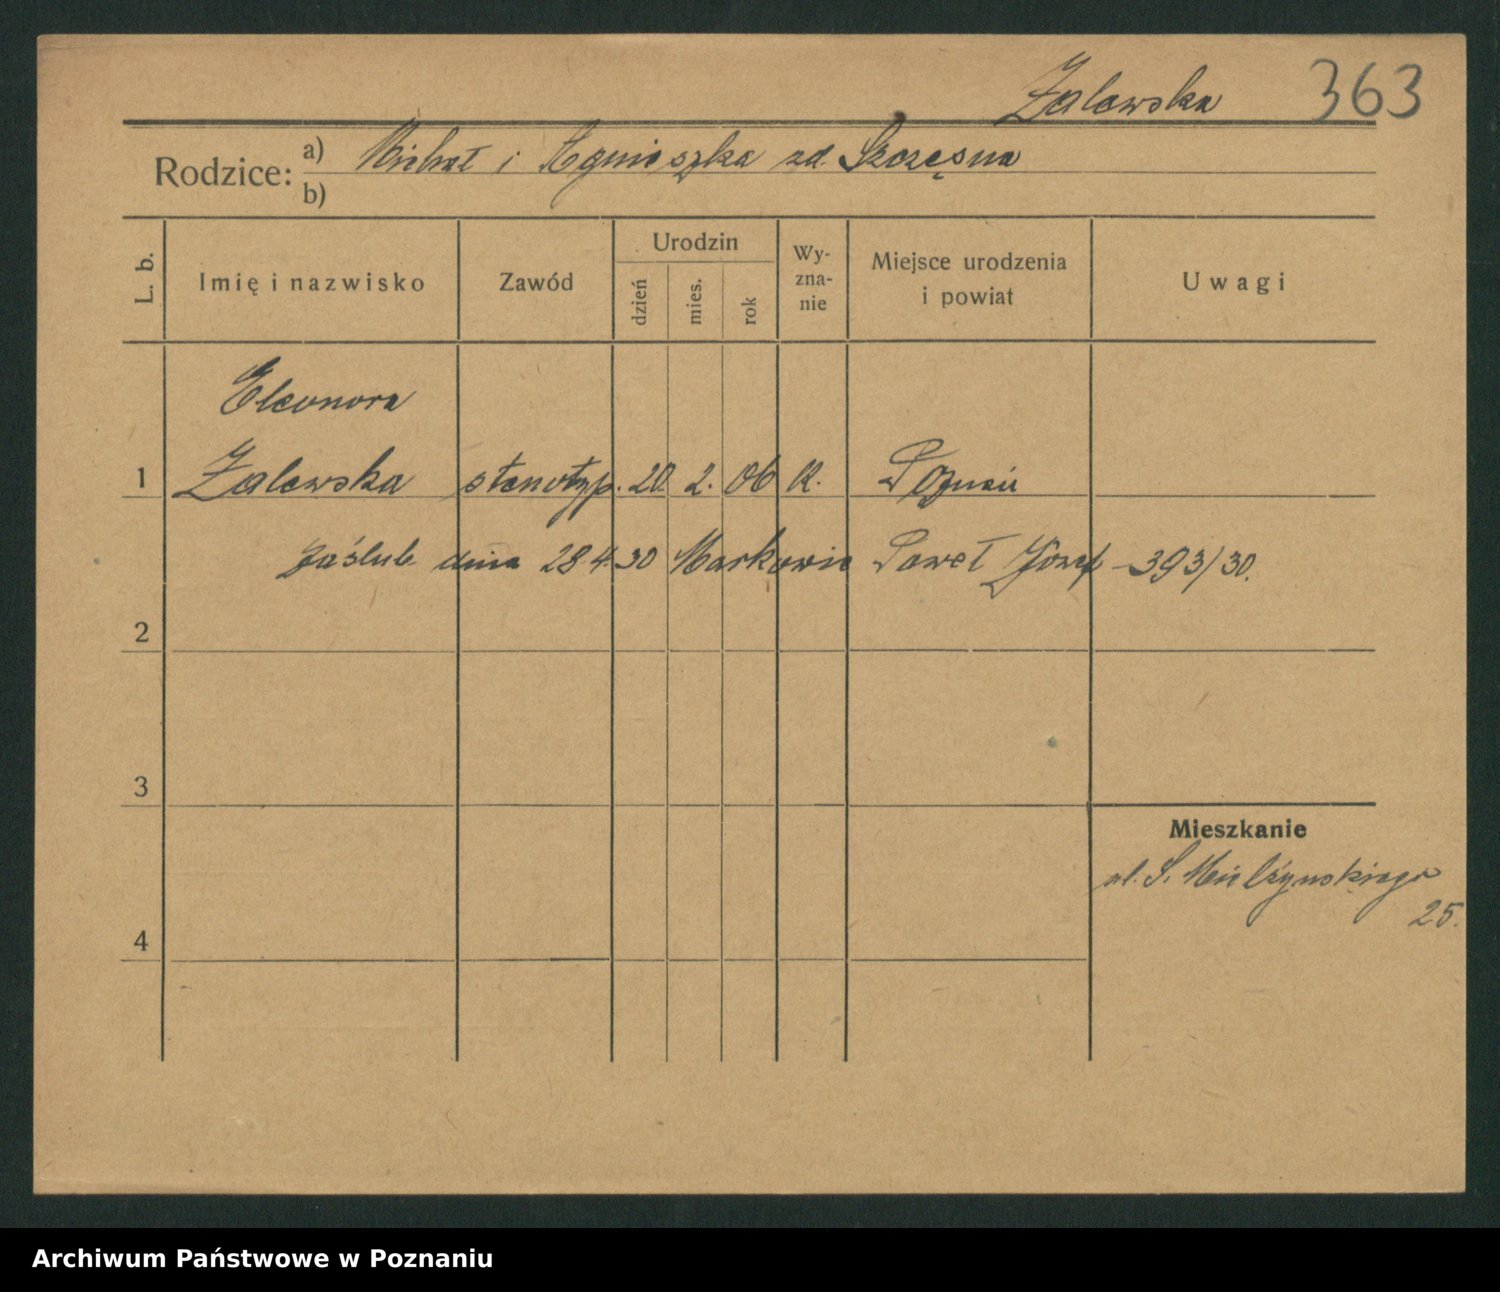 Zalewska 363
Rodzice: a) Michał i Agnieszka zd. Szczęsna
b)
L. b. Imię i nazwisko Zawód Urodzin dzień mies. rok Wy-zna-nie Miejsce urodzenia i powiat Uwagi
Eleonora
1 Zalewska stenotyp. 20. 2. 06 k. Poznań
zaślub. dnia 28.4.30 Markowic Paweł Józef - 393/30.
2
3
Mieszkanie
ul. S. Mielżyńskiego
25.
4
Archiwum Państwowe w Poznaniu